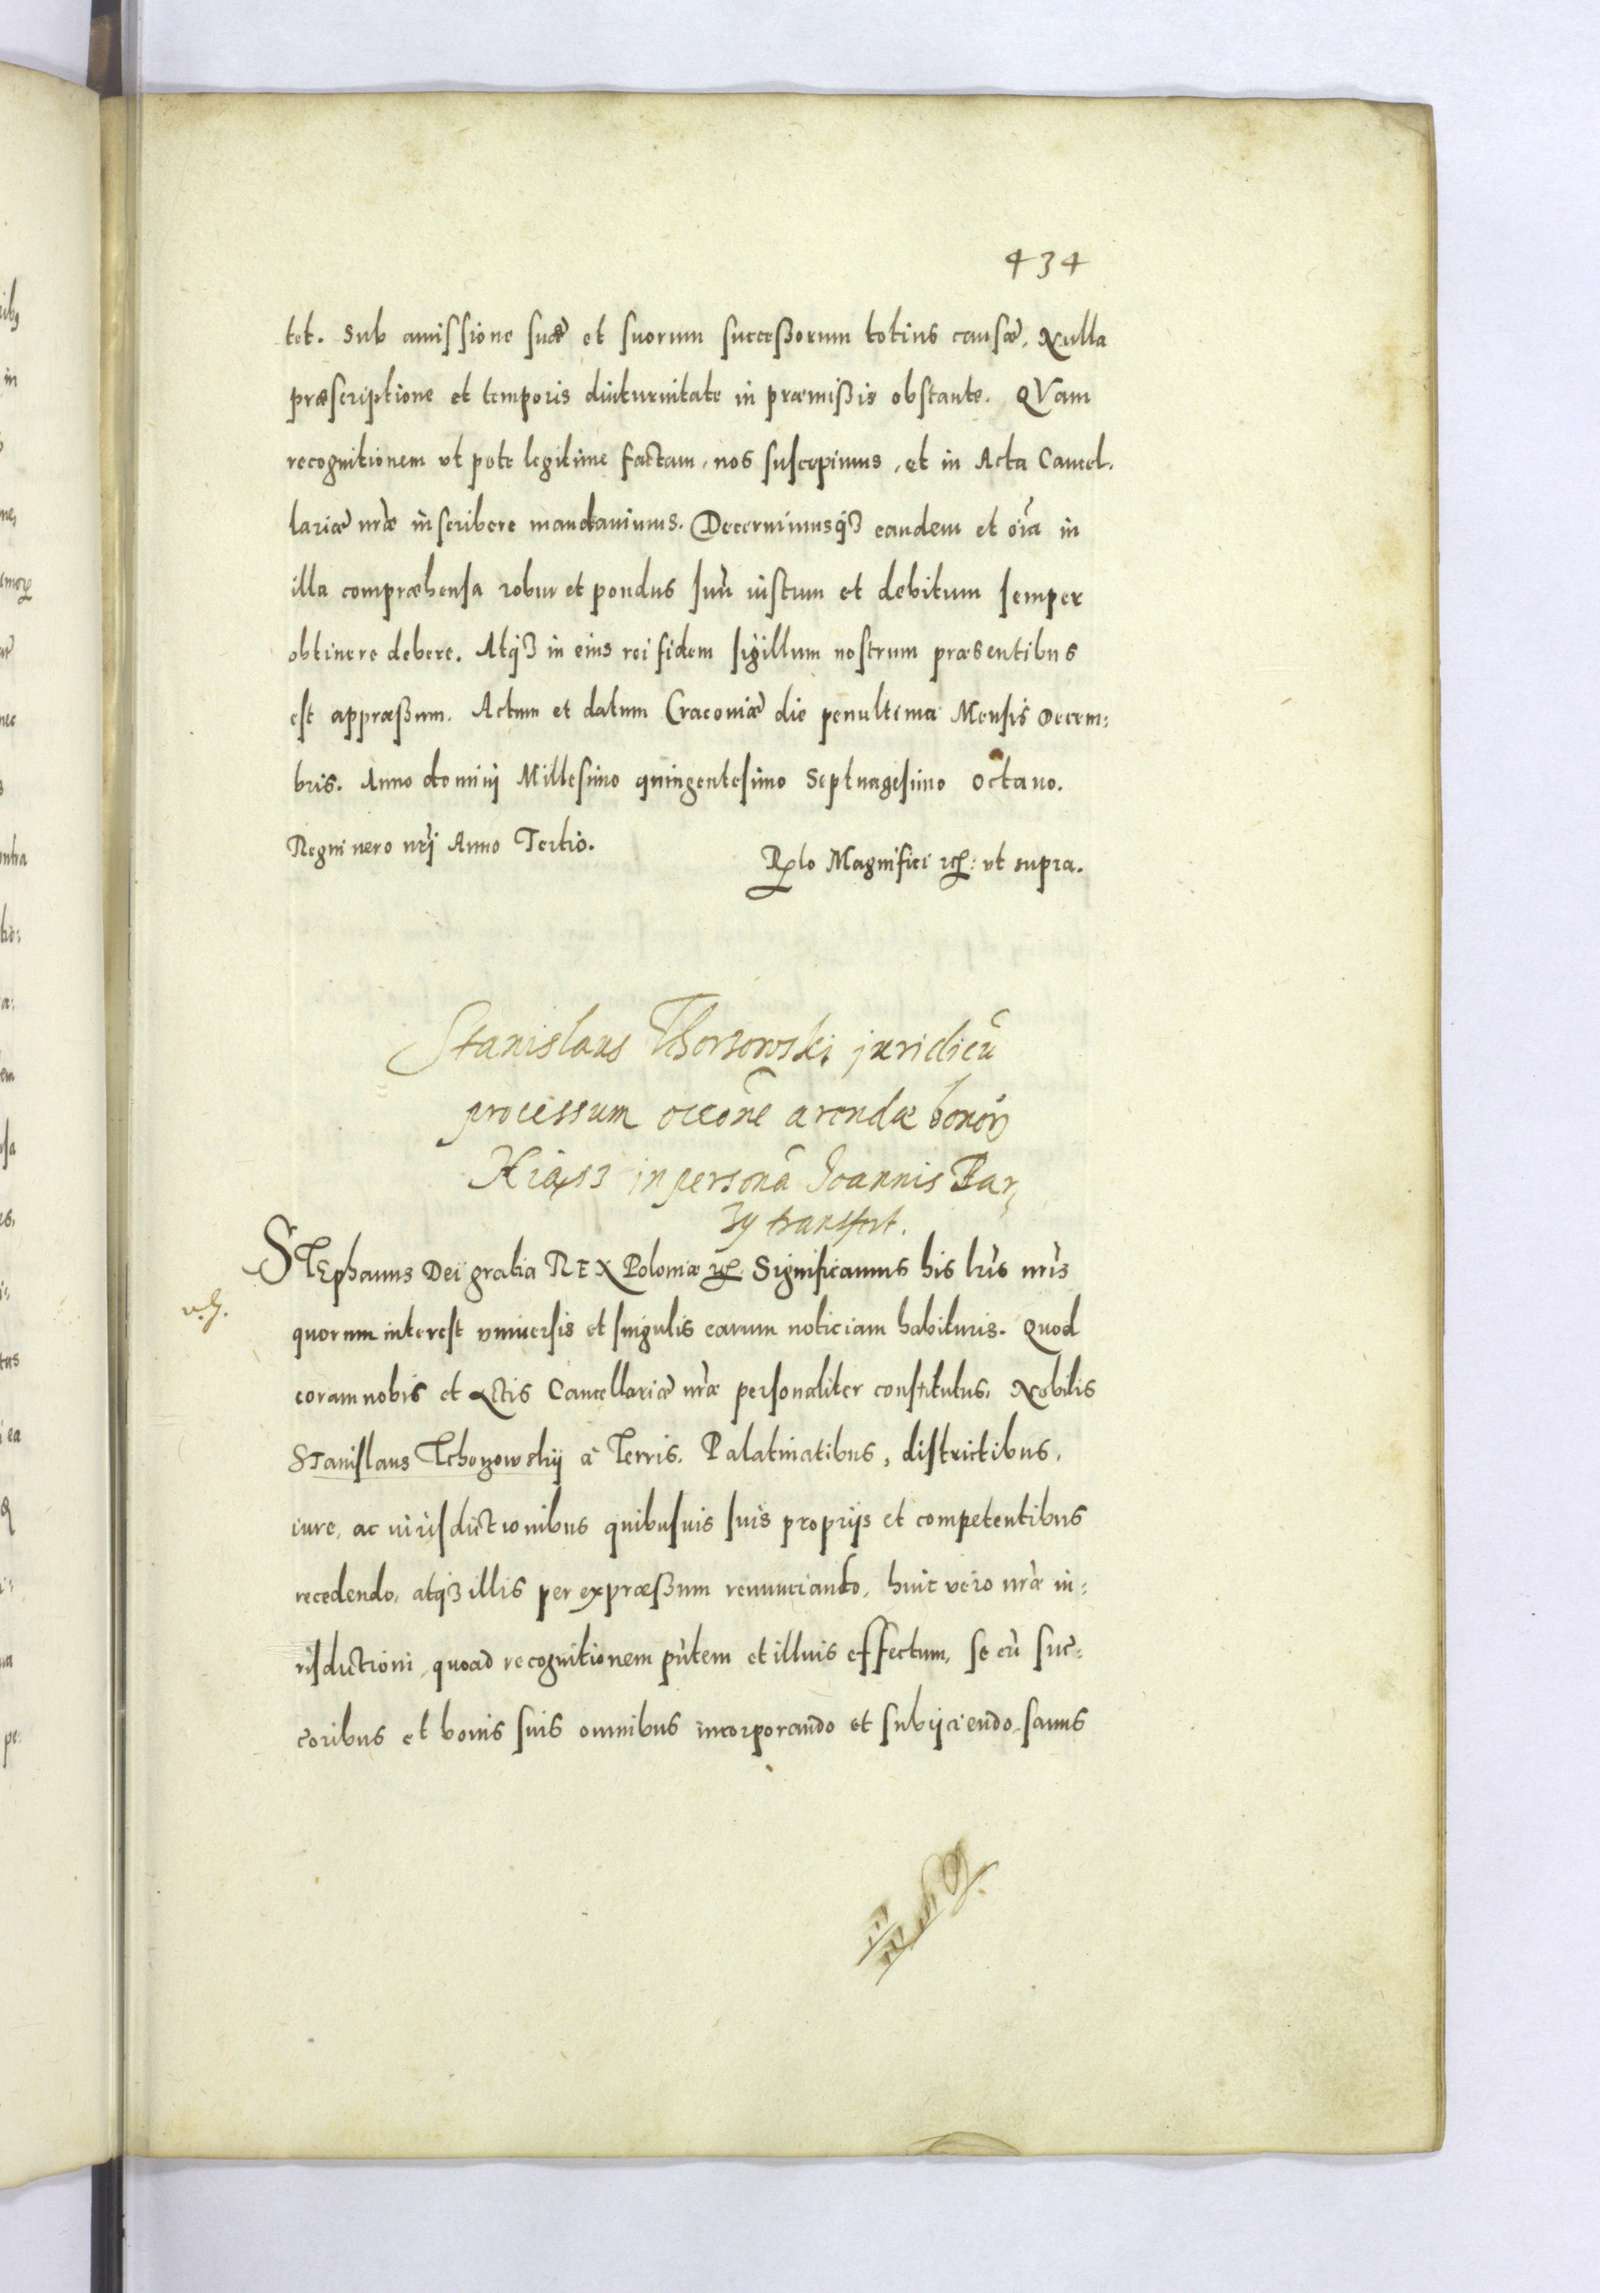 434
tet. Sub amissione suæ et suorum succeßorum totius causæ. Nulla
præscriptione et temporis diuturnitate in præmißis obstante. QVam
recognitionem ut pote legitime factam, nos suscepimus, et in Acta Cancel.
lariæ nr̃æ inscribere mandauimus. Decernimusq3 eandem et oĩa in
illa compræhensa robur et pondus suũ iustum et debitum semper
obtinere debere. Atq3 in eius rei fidem sigillum nostrum præsentibus
est appræßum. Actum et datum Cracouiæ die penultima Mensis Decem:
bris. Anno domini Millesimo quingentesimo Septuagesimo octauo.
Regni vero nr̃i Anno Tertio.
Rẽlo Magnifici etc: ut supra.
Stanislaus juridicũ
processum occõne arendæ bonor
in personã Joannis Bar
zy transfert.
STEphanus Dei gratia REX Poloniæ etc. Significamus his lr̃is nr̃is
quorum interest vniuersis et singulis earum noticiam habituris. Quod
coram nobis et Actis Cancellariæ nr̃æ personaliter constitutus. Nobilis
STanislaus Tchorzowskij à Terris. Palatinatibus, districtibus,
iure, ac iurisdictionibus quibusuis suis proprijs et competentibus
recedendo, atq3 illis per expræßum renunciando, huic vero nr̃æ iu:
risdictioni, quoad recognitionem pñtem et illius effectum, se cũ suc:
coribus et bonis suis omnibus incorporando et subijciendo, sanus